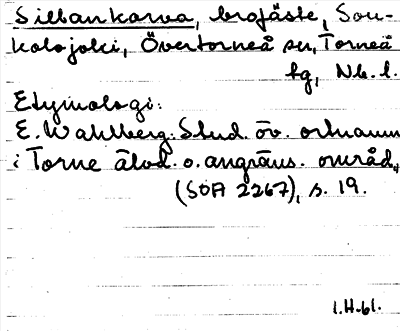 Siltankorva, brofäste, Sou-
kolojoki, Övertorneå sn, Torneå
tg, Nb. l.
Etymologi:
E. Wahlberg: Stud. öv. ortnamn
i Torne älvd. o. angräns. områd.
(SOA 2267), s. 19.
1.H.61.